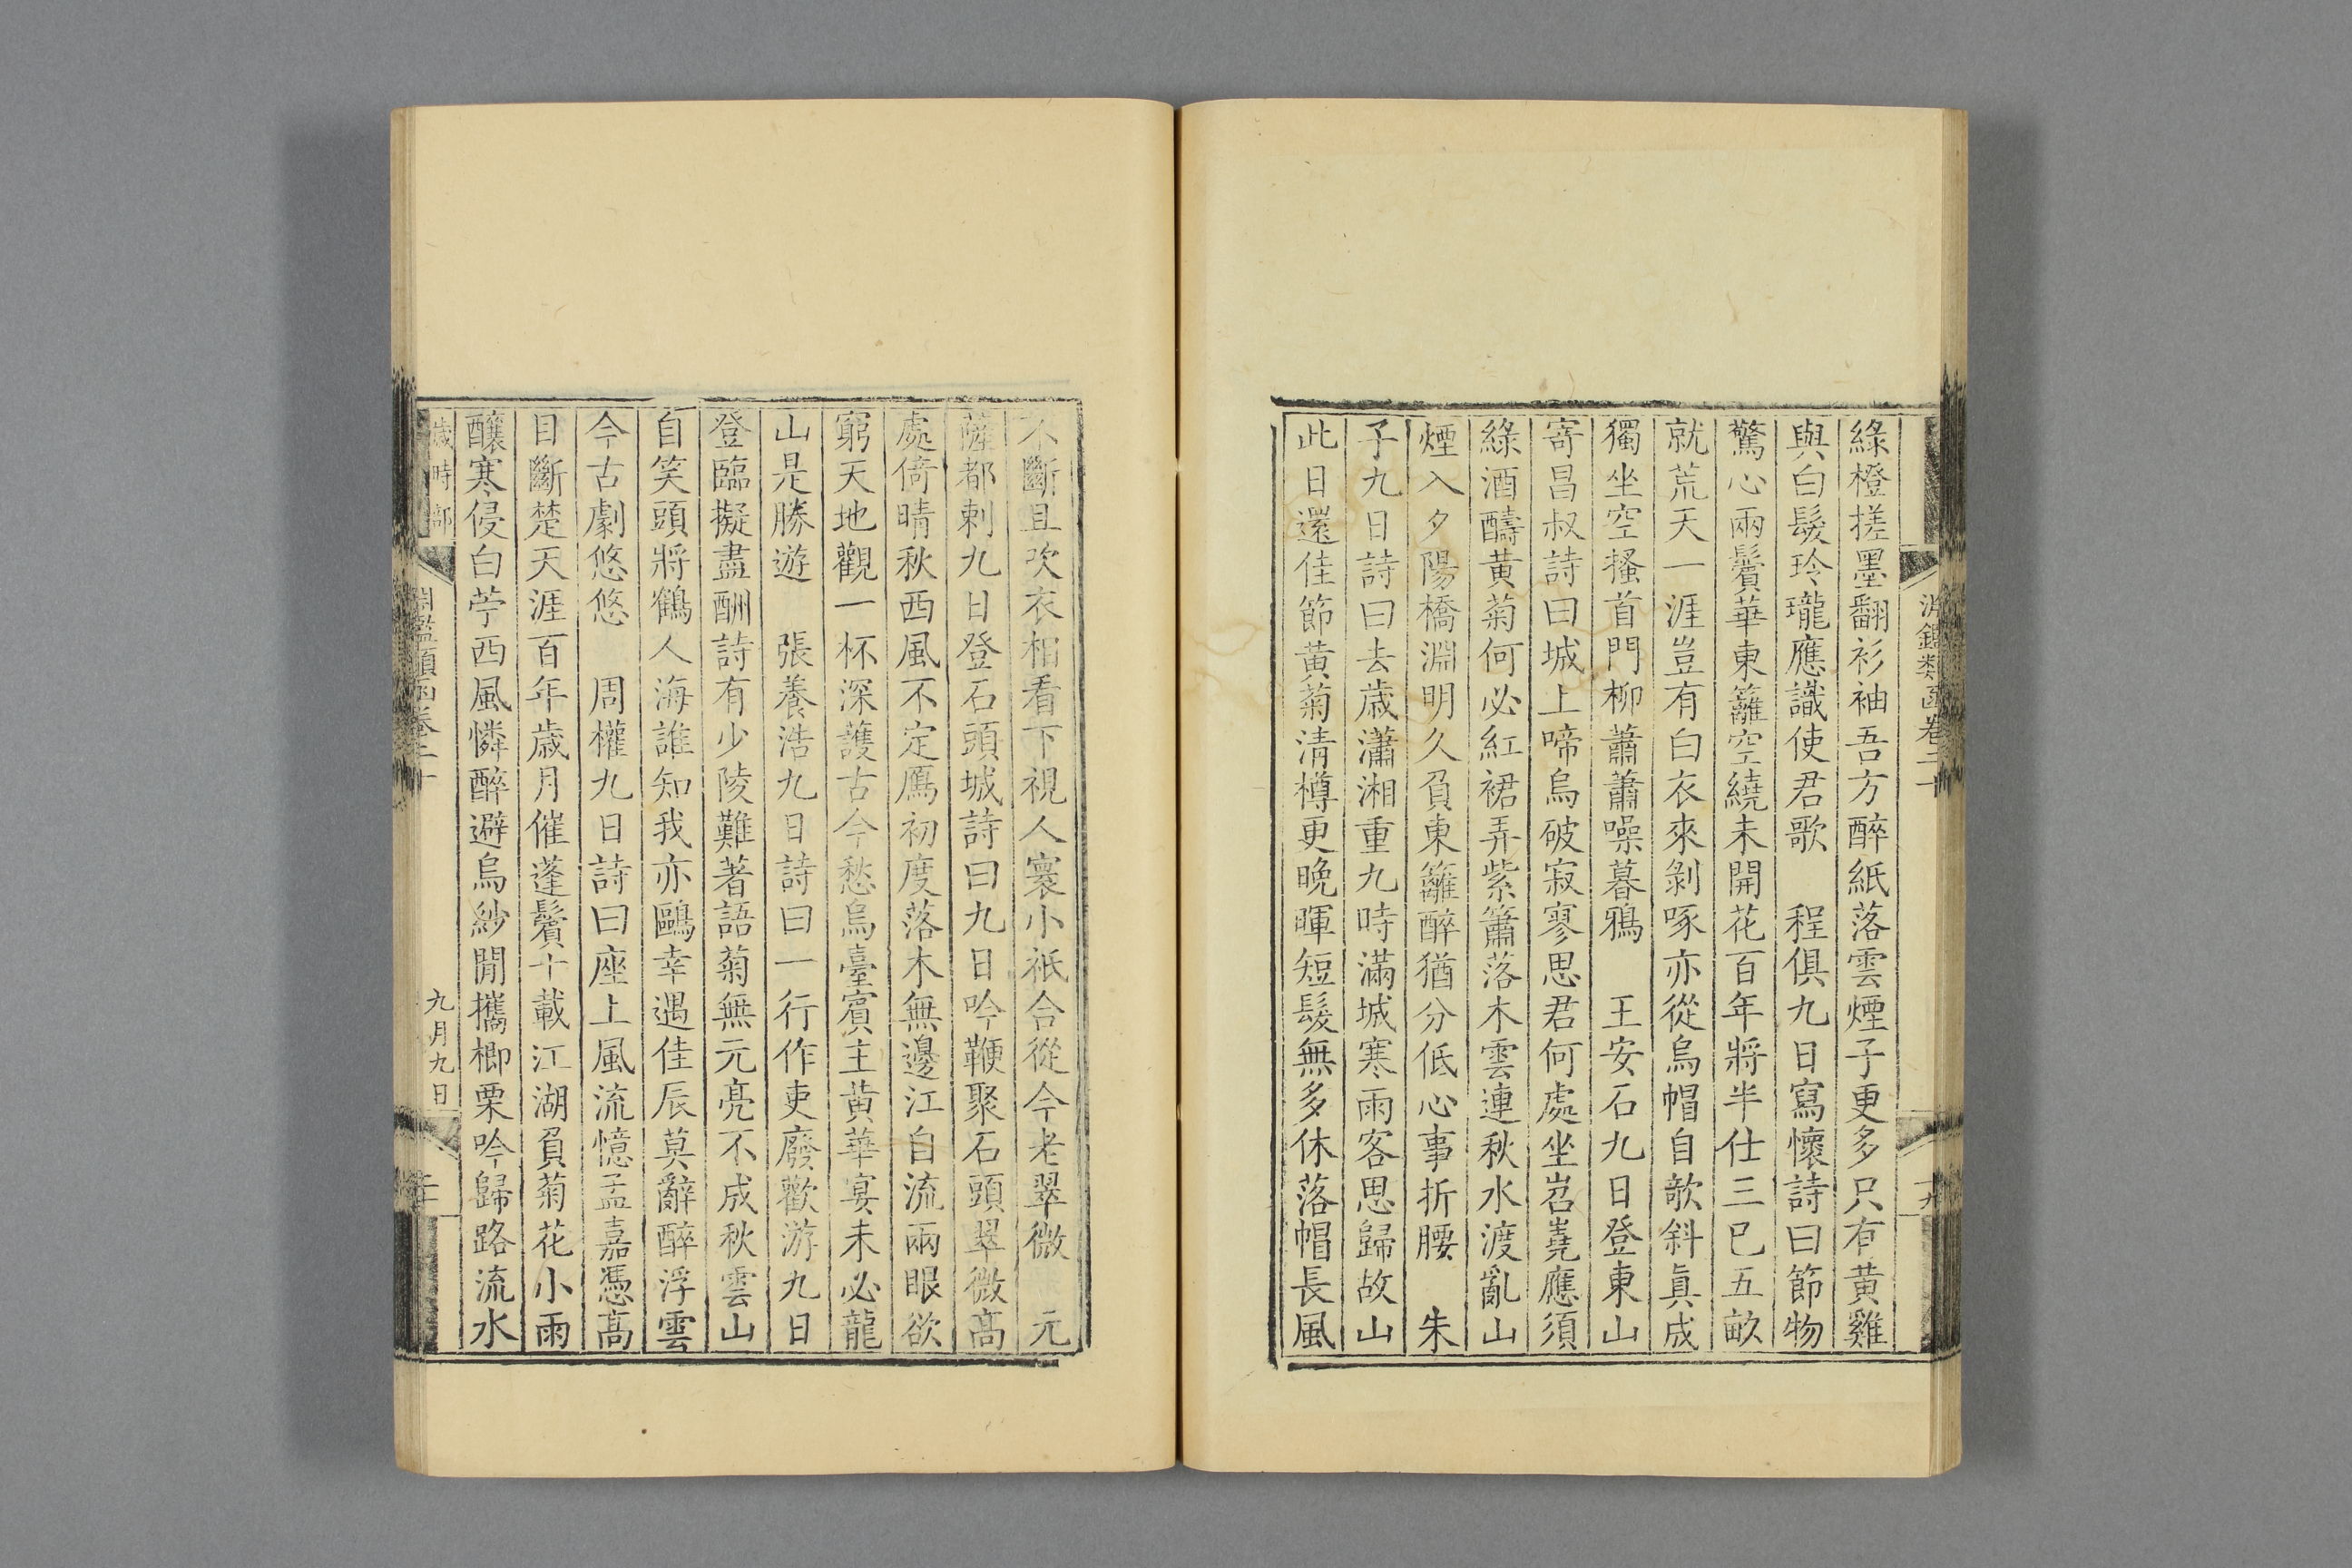 淵鑑類函卷二十
綠橙搓墨翻衫袖吾方醉紙落雲煙子更多只有黃雞
與白髮玲瓏應識使君歌　程俱九日寫懷詩曰節物
驚心兩鬢華東籬空繞未開花百年將半仕三已五畝
就荒天一涯豈有白衣來剝啄亦從烏帽自欹斜真成
獨坐空搔首門柳蕭蕭噪暮鴉　王安石九日登東山
寄昌叔詩曰城上啼烏破寂寥思君何處坐岧嶤應須
綠酒醻黃菊何必紅裙弄紫簫落木雲連秋水渡亂山
煙入夕陽橋淵明久負東籬醉猶分低心事折腰　朱
子九日詩曰去歲瀟湘重九時滿城寒雨客思歸故山
此日還佳節黃菊清樽更晚暉短髮無多休落帽長風
不斷且吹衣相看下視人寰小祇合從今老翠微　元
薩都剌九日登石頭城詩曰九日吟鞭聚石頭翠微高
處倚晴秋西風不定鴈初度落木無邊江自流兩眼欲
窮天地觀一杯深護古今愁烏臺賓主黃華宴未必龍
山是勝遊　張養浩九日詩曰一行作吏廢歡游九日
登臨擬盡酬詩有少陵難著語菊無元亮不成秋雲山
自笑頭將鶴人海誰知我亦鷗幸遇佳辰莫辭醉浮雲
今古劇悠悠　周權九日詩曰座上風流憶孟嘉憑高
目斷楚天涯百年歲月催蓬鬢十載江湖負菊花小雨
釀寒侵白苧西風憐醉避烏紗閒攜楖栗吟歸路流水
歲時部　淵鑑類函卷二十　九月九日